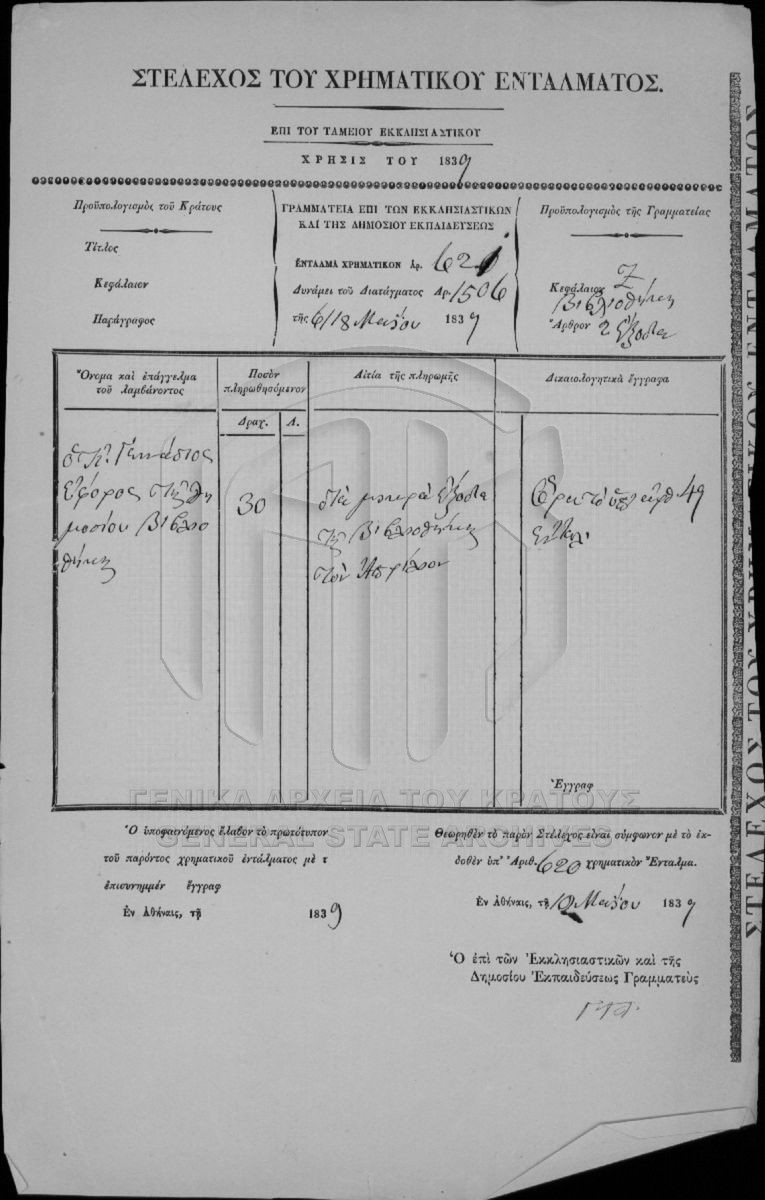 ΣΤΕΛΕΧΟΣ ΤΟΥ ΧΡΗΜΑΤΙΚΟΥ ΕΝΤΑΛΜΑΤΟΣ.
ΕΠΙ ΤΟΥ ΤΑΜΕΙΟΥ ΕΚΚΛΗΣΙΑΣΤΙΚΟΥ
ΧΡΗΣΙΣ ΤΟΥ 1839
Προϋπολογισμὸς τοῦ Κράτους
Τίτλος
Κεφάλαιον
Παράγραφος
ΓΡΑΜΜΑΤΕΙΑ ΕΠΙ ΤΩΝ ΕΚΚΛΗΣΙΑΣΤΙΚΩΝ
ΚΑΙ ΤΗΣ ΔΗΜΟΣΙΟΥ ΕΚΠΑΙΔΕΥΣΕΩΣ
ΕΝΤΑΛΜΑ ΧΡΗΜΑΤΙΚΟΝ Ἀρ. 620
Δυνάμει τοῦ Διατάγματος Ἀρ. 1506
τῆς 6/18 Μαΐου 1839
Προϋπολογισμὸς τῆς Γραμματείας
Κεφάλαιον Ζ
Βιβλιοθήκη
Ἄρθρον 2 Ἔξοδα
Ὄνομα καὶ ἐπάγγελμα
τοῦ λαμβάνοντος
Ποσὸν
πληρωθησόμενον
Δραχ. Λ.
Αἰτία τῆς πληρωμῆς
Δικαιολογητικὰ ἔγγραφα
ὁ Κ. Γεννάδιος
Ἔφορος τῆς δη
μοσίου βιβλιο
θήκης
30
διὰ μικρὰ ἔξοδα
τῆς βιβλιοθήκης
τὸν Ἀπρίλιον
49
Ἔγγραφ
Ὁ ὑποφαινόμενος ἔλαβον τὸ πρωτότυπον
τοῦ παρόντος χρηματικοῦ ἐντάλματος μὲ τ
ἐπισυνημμέν ἔγγραφ
Ἐν Ἀθήναις, τῇ 1839
Θεωρηθὲν τὸ παρὸν Στέλεχος εἶναι σύμφωνον μὲ τὸ ἐκ-
δοθὲν ὑπ' Ἀριθ. 620 χρηματικὸν Ἔνταλμα.
Ἐν Ἀθήναις, τῇ Μαΐου 1839
Ὁ ἐπὶ τῶν Ἐκκλησιαστικῶν καὶ τῆς
Δημοσίου Ἐκπαιδεύσεως Γραμματεὺς
ΓΕΝΙΚΑ ΑΡΧΕΙΑ ΤΟΥ ΚΡΑΤΟΥΣ
GENERAL STATE ARCHIVES
ΣΤΕΛΕΧΟΣ ΤΟΥ ΧΡΗΜΑΤΙΚΟΥ ΕΝΤΑΛΜΑΤΟΣ